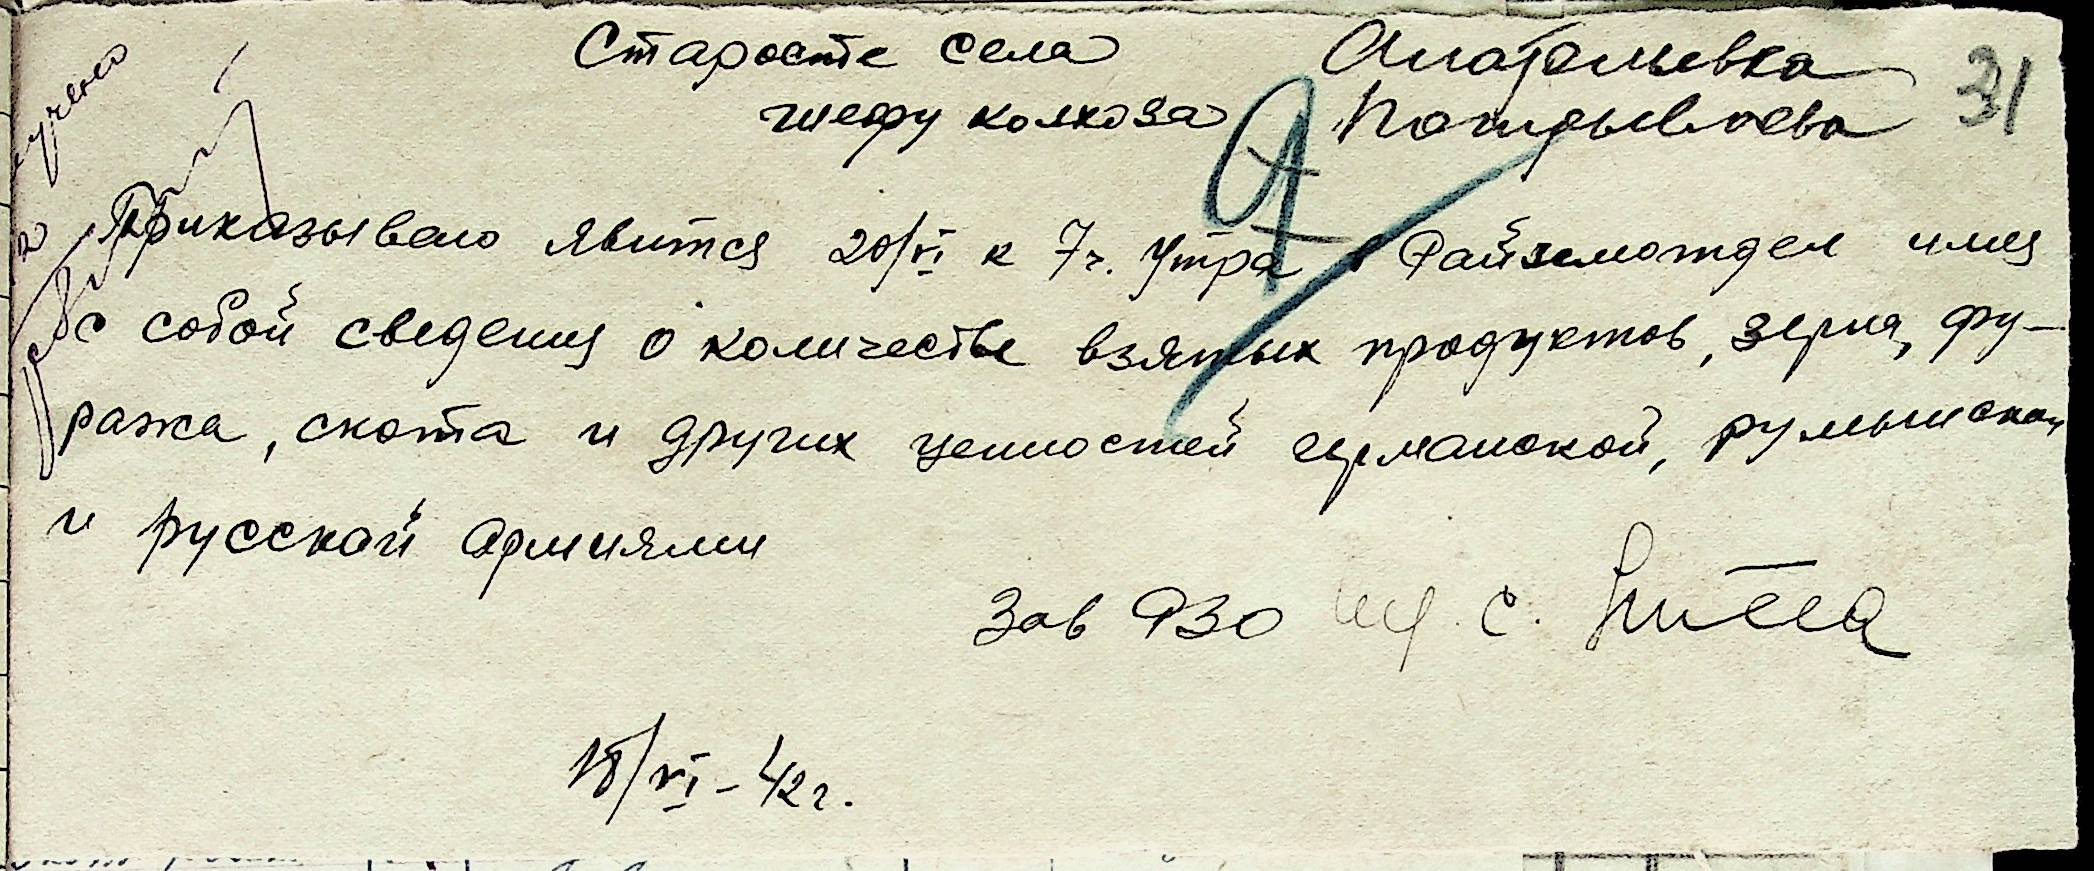 Старосте села Анатольевка
шефу колхоза
31
Приказываю явится 20/VI к 7 ч. утра в Райземотдел имея
с собой сведения о количестве взятых продуктов, зерна, фу-
ража, скота и других ценностей германской, румынской
и русской армиями
Зав РЗО
18/VI - 42 г.